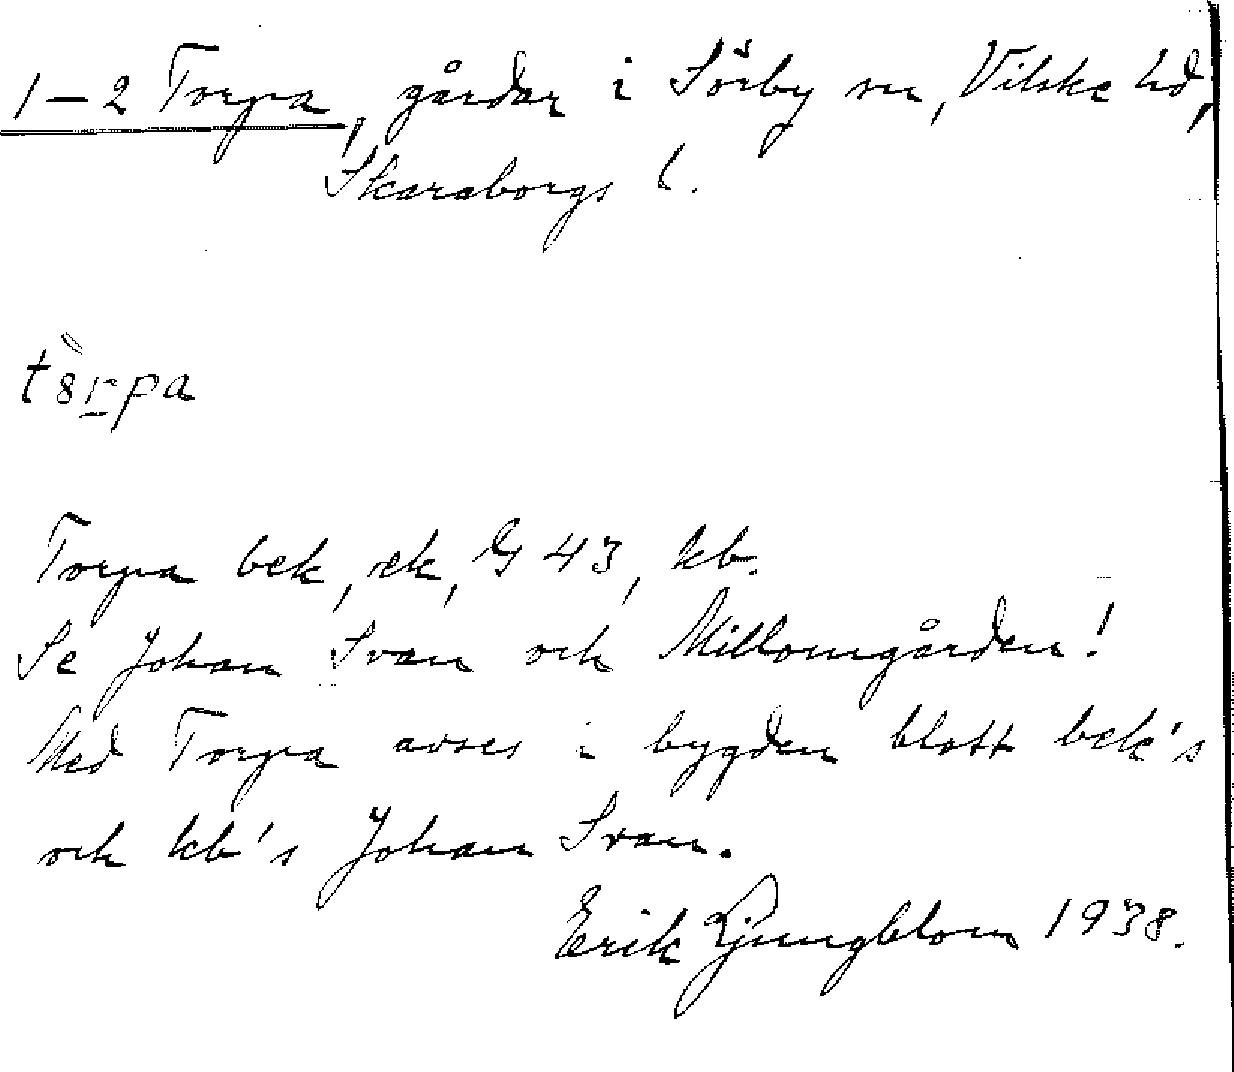 1-2 Torpa, gårdar i Sörby sn, Vilske hd,
Skaraborgs l.
tȍrpa
Torpa bek, ek, G 43, kb.
Se Johan Svan och Millomgården!
Med Torpa avses i bygden blott bek's
och kb's Johan Svan.
Erik Ljungblom 1938.